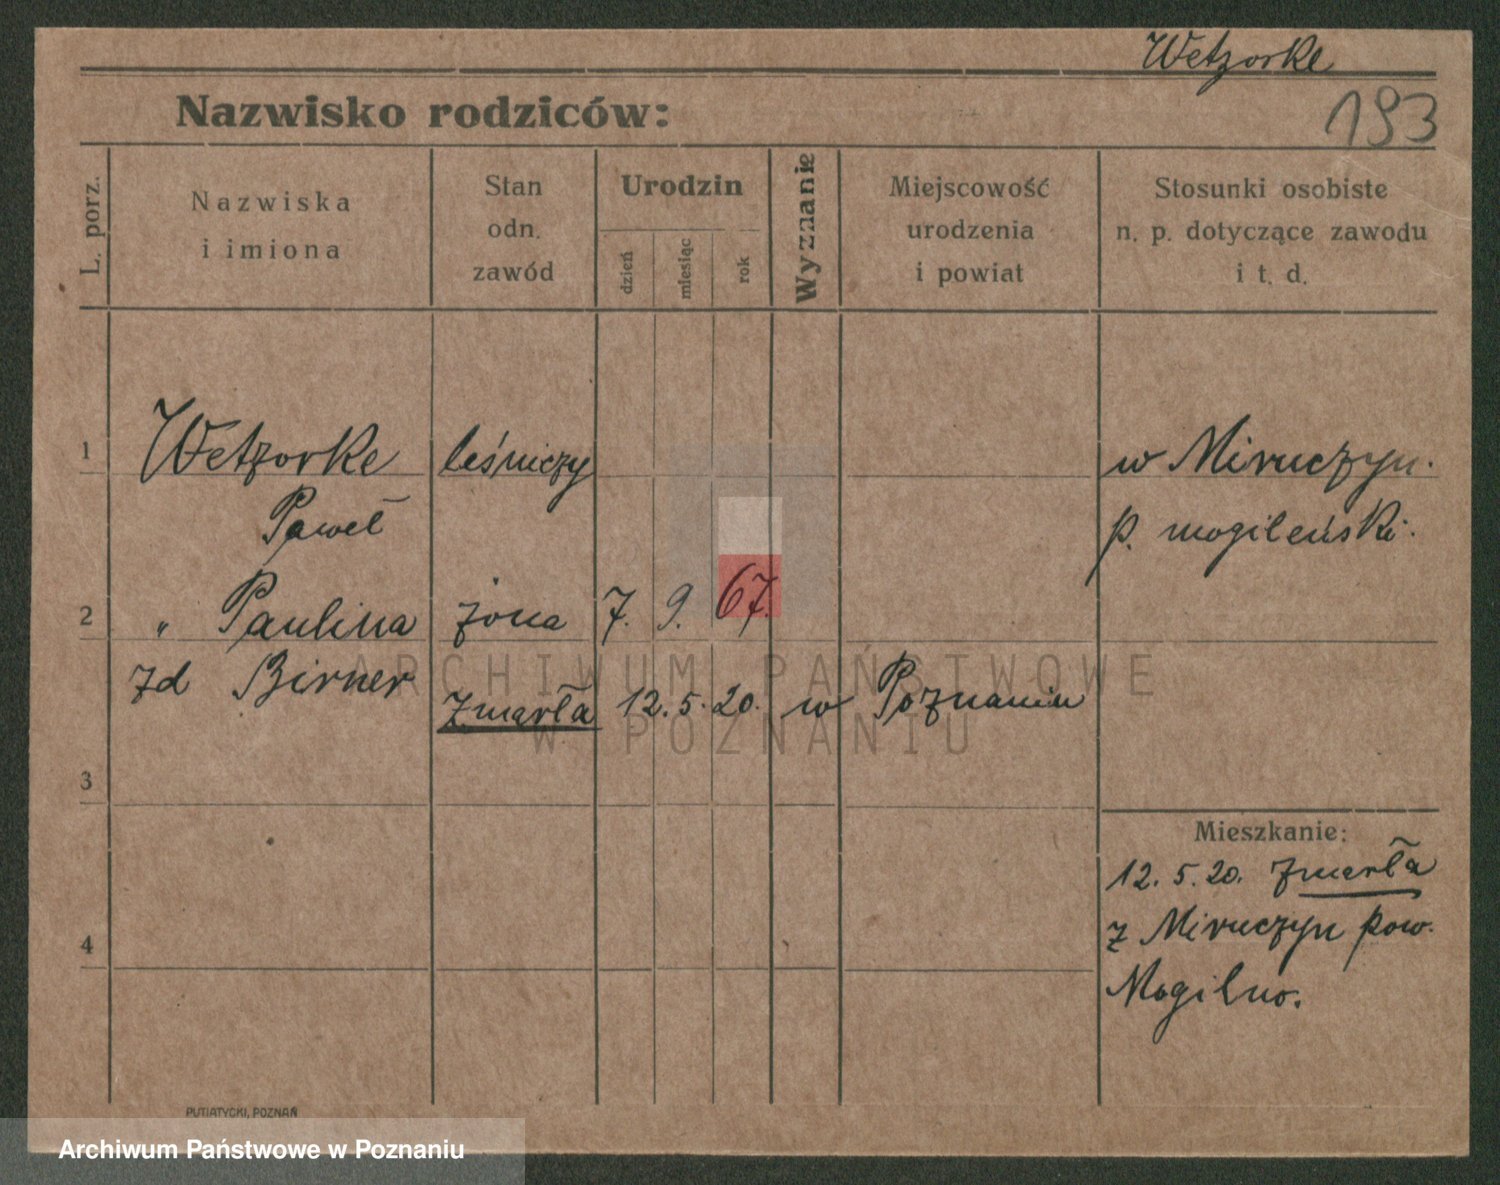 Wetzorke
Nazwisko rodziców:
193
L. porz.
Nazwiska
i imiona
Stan
odn.
zawód
Urodzin
dzień
miesiąc
rok
Wyznanie
Miejscowość
urodzenia
i powiat
Stosunki osobiste
n. p. dotyczące zawodu
i t. d.
1 Wetzorke leśniczy w Miruczyn.
Paweł p. mogileński.
2 " Paulina żona 7. 9. 67.
zd Birner
zmarła 12. 5. 20. w Poznaniu
ARCHIWUM PAŃSTWOWE
W POZNANIU
3
Mieszkanie:
12. 5. 20. zmarła
z Miruczyn pow.
Mogilno.
4
PUTIATYCKI, POZNAŃ
Archiwum Państwowe w Poznaniu